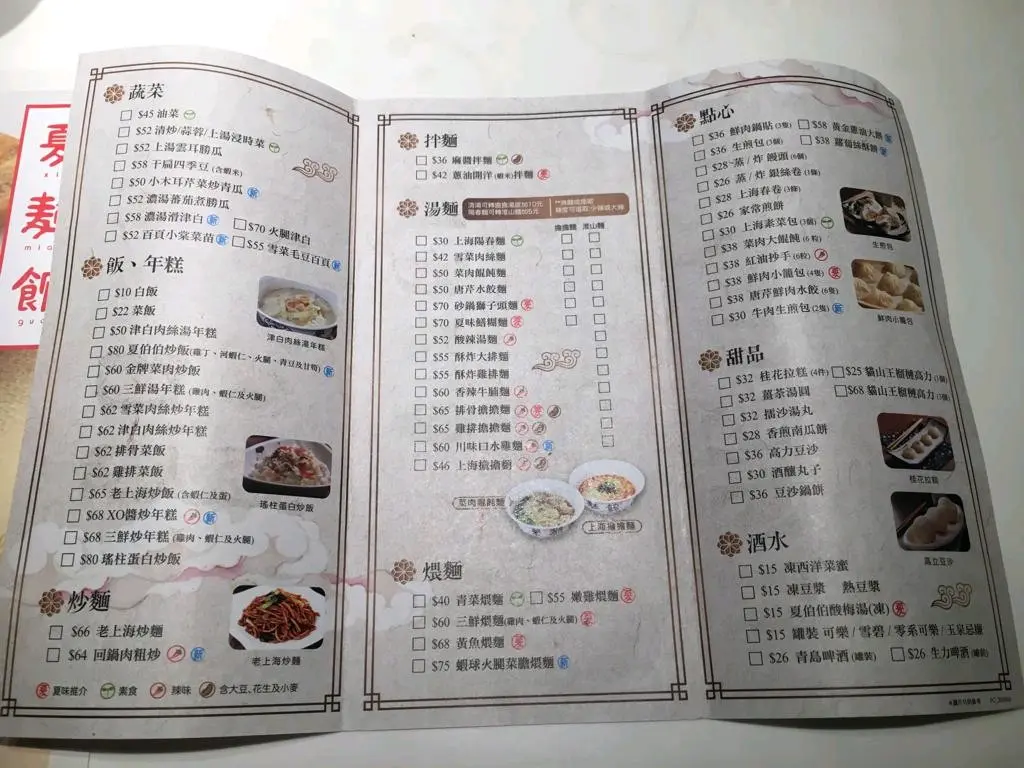 夏
麵
館
蔬菜
$45 油菜
$52 清炒/蒜蓉/上湯浸時菜
$52 上湯雲耳勝瓜
$58 干扁四季豆 (含蝦米)
$50 小木耳芹菜炒青瓜 新
$52 濃湯蕃茄煮勝瓜
$58 濃湯滑津白 新 $70 火腿津白
$52 百頁小棠菜苗 新 $55 雪菜毛豆百頁 新
飯、年糕
$10 白飯
$22 菜飯
$50 津白肉絲湯年糕
$80 夏伯伯炒飯(雞丁、河蝦仁、火腿、青豆及甘筍) 新
$60 金牌菜肉炒飯
$60 三鮮湯年糕 (雞肉、蝦仁及火腿)
$62 雪菜肉絲炒年糕
$62 津白肉絲炒年糕
$62 排骨菜飯
$62 雞排菜飯
$65 老上海炒飯 (含蝦仁及蛋)
$68 XO醬炒年糕 新
$68 三鮮炒年糕 (雞肉、蝦仁及火腿)
$80 瑤柱蛋白炒飯
津白肉絲湯年糕
瑤柱蛋白炒飯
炒麵
$66 老上海炒麵
$64 回鍋肉粗炒 新
老上海炒麵
夏味推介 素食 辣味 含大豆、花生及小麥
拌麵
$36 麻醬拌麵
$42 蔥油開洋 (蝦米) 拌麵
湯麵
擔擔麵 淮山麵
$30 上海陽春麵
$42 雪菜肉絲麵
$50 菜肉餛飩麵
$50 唐芹水餃麵
$70 砂鍋獅子頭麵
$70 夏味鱔糊麵
$52 酸辣湯麵
$55 酥炸大排麵
$55 酥炸雞排麵
$60 香辣牛腩麵
$65 排骨擔擔麵
$65 雞排擔擔麵
$60 川味口水雞麵 新
$46 上海擔擔麵
菜肉餛飩麵
上海擔擔麵
煨麵
$40 青菜煨麵 $55 嫩雞煨麵
$60 三鮮煨麵(雞肉、蝦仁及火腿)
$68 黃魚煨麵
$75 蝦球火腿菜膽煨麵 新
點心
$36 鮮肉鍋貼 (3隻) $58 黃金蔥油大餅 新
$36 生煎包 (3個) $38 蘿蔔絲酥餅 新
$28 蒸 / 炸 饅頭 (6個)
$26 蒸 / 炸 銀絲卷 (1條)
$28 上海春卷 (3條)
$26 家常煎餅
$30 上海素菜包 (3個)
$38 菜肉大餛飩 (6 粒)
$38 紅油抄手 (6粒)
$38 鮮肉小籠包 (4隻)
$38 唐芹鮮肉水餃 (6隻)
$30 牛肉生煎包 (2隻) 新
生煎包
鮮肉小籠包
甜品
$32 桂花拉糕 (4件) $25 貓山王榴槤高力 (1個)
$32 薑茶湯圓 $68 貓山王榴槤高力 (3個)
$32 擂沙湯丸
$28 香煎南瓜餅
$36 高力豆沙
$30 酒釀丸子
$36 豆沙鍋餅
桂花拉糕
高立豆沙
酒水
$15 凍西洋菜蜜
$15 凍豆漿 熱豆漿
$15 夏伯伯酸梅湯(凍)
$15 罐裝 可樂 / 雪碧 / 零系可樂 / 玉泉忌廉
$26 青島啤酒 (罐裝) $26 生力啤酒 (罐裝)